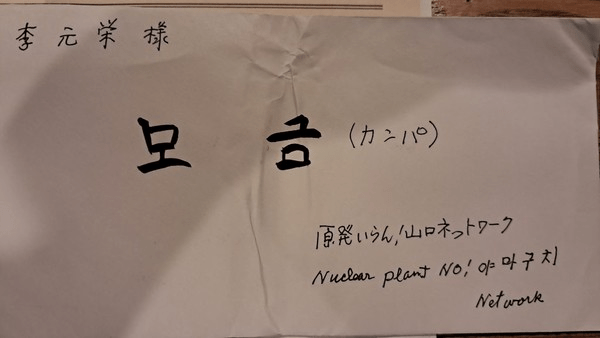 李元栄様
모금 (カンパ)
原発いらん!山口ネットワーク
Nuclear plant NO! 야마구치
Network